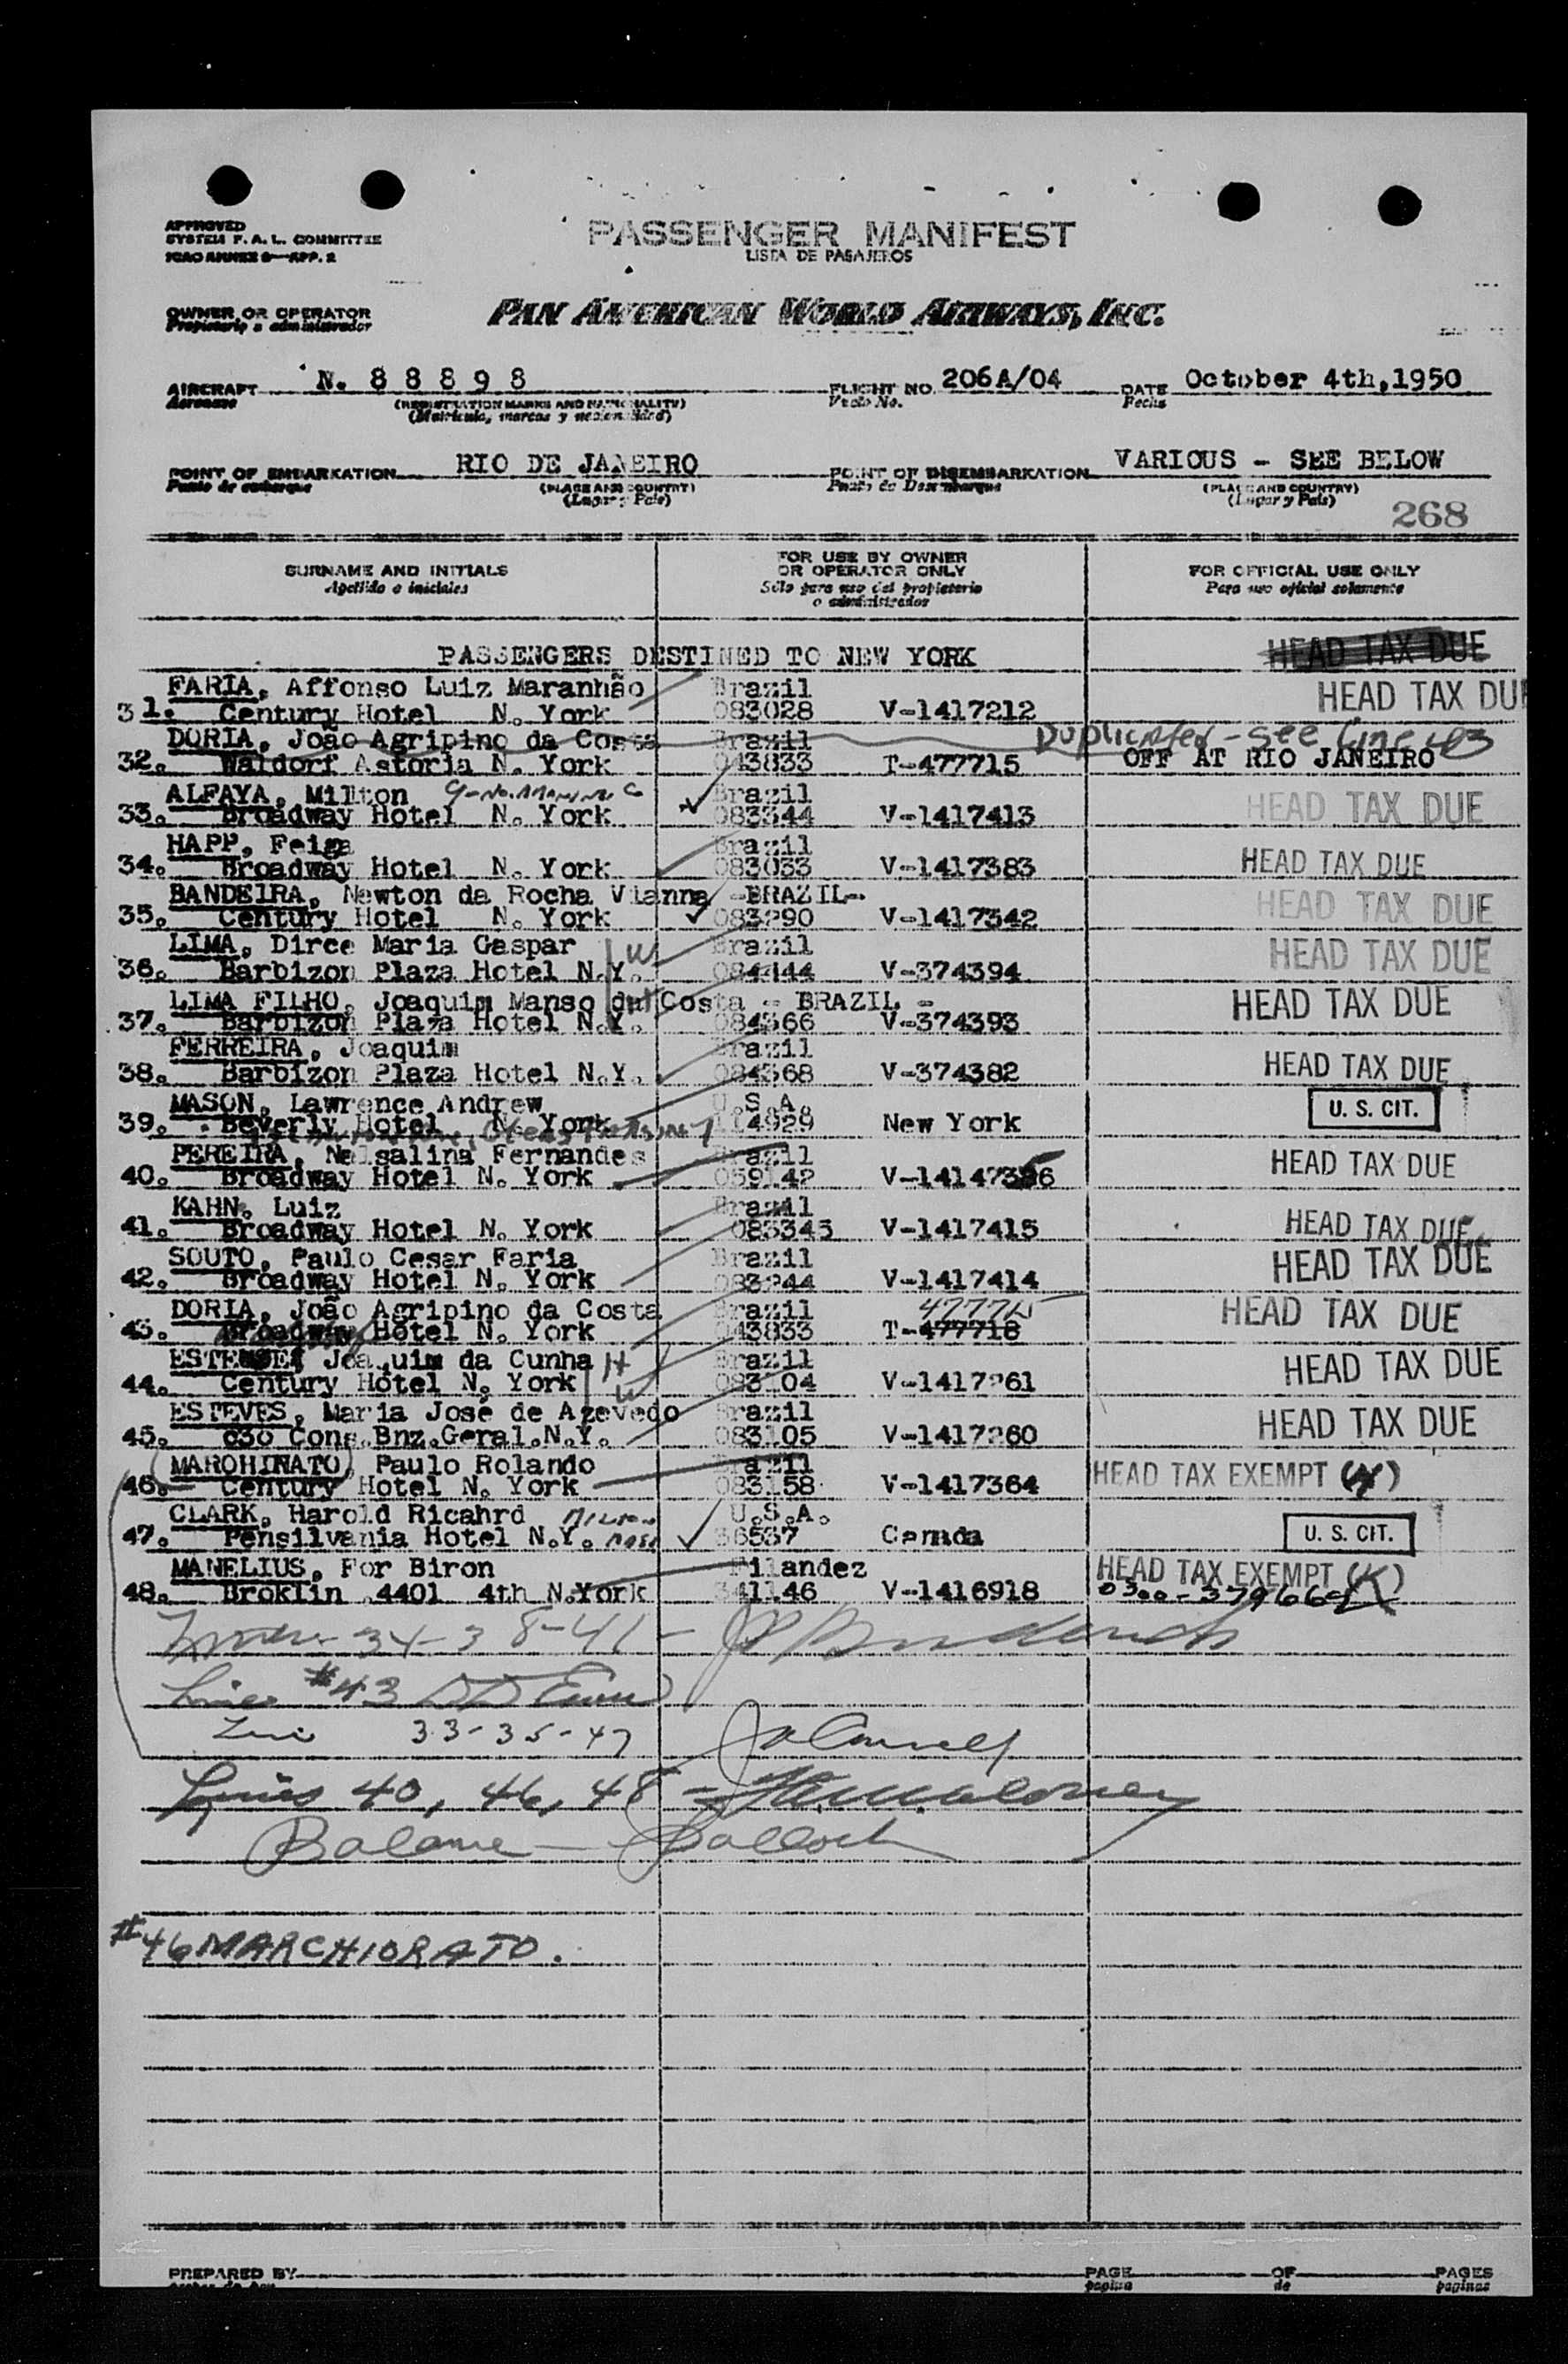 APPROVED
SYSTEM F. A. L. COMMITTEE
ICAO ANNEX 9—APP. 2
PASSENGER MANIFEST
LISTA DE PASAJEROS
OWNER OR OPERATOR
Propietario o administrador
PAN AMERICAN WORLD AIRWAYS, INC.
AIRCRAFT N. 8 8 8 9 8 FLIGHT NO. 206A/04 DATE October 4th,1950
Aeronave (REGISTRATION MARKS AND NATIONALITY) Vuelo No. Fecha
(Matrícula, marcas y nacionalidad)
POINT OF EMBARKATION RIO DE JANEIRO POINT OF DISEMBARKATION VARIOUS - SEE BELOW
Punto de embarque (PLACE AND COUNTRY) Punto de Desembarque (PLACE AND COUNTRY)
(Lugar y País) (Lugar y País)
268
SURNAME AND INITIALS FOR USE BY OWNER OR OPERATOR ONLY FOR OFFICIAL USE ONLY
Apellido e iniciales Sólo para uso del propietario o administrador Para uso oficial solamente
PASSENGERS DESTINED TO NEW YORK HEAD TAX DUE
FARIA, Affonso Luiz Maranhão Brazil HEAD TAX DUE
31. Century Hotel N. York 083028 V-1417212
DORIA, João Agripino da Costa Brazil Duplicated - see line 43
32. Waldorf Astoria N. York 043833 T-477715 OFF AT RIO JANEIRO
ALFAYA, Milton Brazil
33. Broadway Hotel N. York 083344 V-1417413 HEAD TAX DUE
HAPP, Feiga Brazil
34. Broadway Hotel N. York 083033 V-1417383 HEAD TAX DUE
BANDEIRA, Newton da Rocha Vianna -BRAZIL-
35. Century Hotel N. York 083290 V-1417342 HEAD TAX DUE
LIMA, Dirce Maria Gaspar W Brazil
36. Barbizon Plaza Hotel N.Y. 084444 V-374394 HEAD TAX DUE
LIMA FILHO, Joaquim Manso da Costa - BRAZIL - HEAD TAX DUE
37. Barbizon Plaza Hotel N.Y. 084366 V-374393
FERREIRA, Joaquim Brazil
38. Barbizon Plaza Hotel N.Y. 084368 V-374382 HEAD TAX DUE
MASON, Lawrence Andrew U.S.A. U. S. CIT.
39. Beverly Hotel N. York 4929 New York
PEREIRA, Nelsalina Fernandes Brazil
40. Broadway Hotel N. York 059142 HEAD TAX DUE
KAHN, Luiz Brazil
41. Broadway Hotel N. York 083345 V-1417415 HEAD TAX DUE
SOUTO, Paulo Cesar Faria Brazil
42. Broadway Hotel N. York 083244 V-1417414 HEAD TAX DUE
DORIA, João Agripino da Costa Brazil 477715 HEAD TAX DUE
43. Broadway Hotel N. York 043833 T-477718
Joaquim da Cunha H Brazil
44. Century Hotel N. York W 083104 V-1417261 HEAD TAX DUE
ESTEVES, Maria José de Azevedo Brazil
45. c30 Cons.Bnz.Geral.N.Y. 083105 V-1417260 HEAD TAX DUE
(MAROHINATO) Paulo Rolando Brazil
46. Century Hotel N. York 083158 V-1417364 HEAD TAX EXEMPT
CLARK, Harold Ricahrd U.S.A.
47. Pensilvania Hotel N.Y. 36537 Canada U. S. CIT.
MANELIUS, For Biron Filandez HEAD TAX EXEMPT (K)
48. Broklin 4401 4th N.York 341146 V-1416918 0300-
34-38-41-
Line #43
Line 33-35-47
Lines 40, 46, 48 -
Balance -
#46 MARCHIORATO.
PREPARED BY PAGE OF PAGES
página de páginas